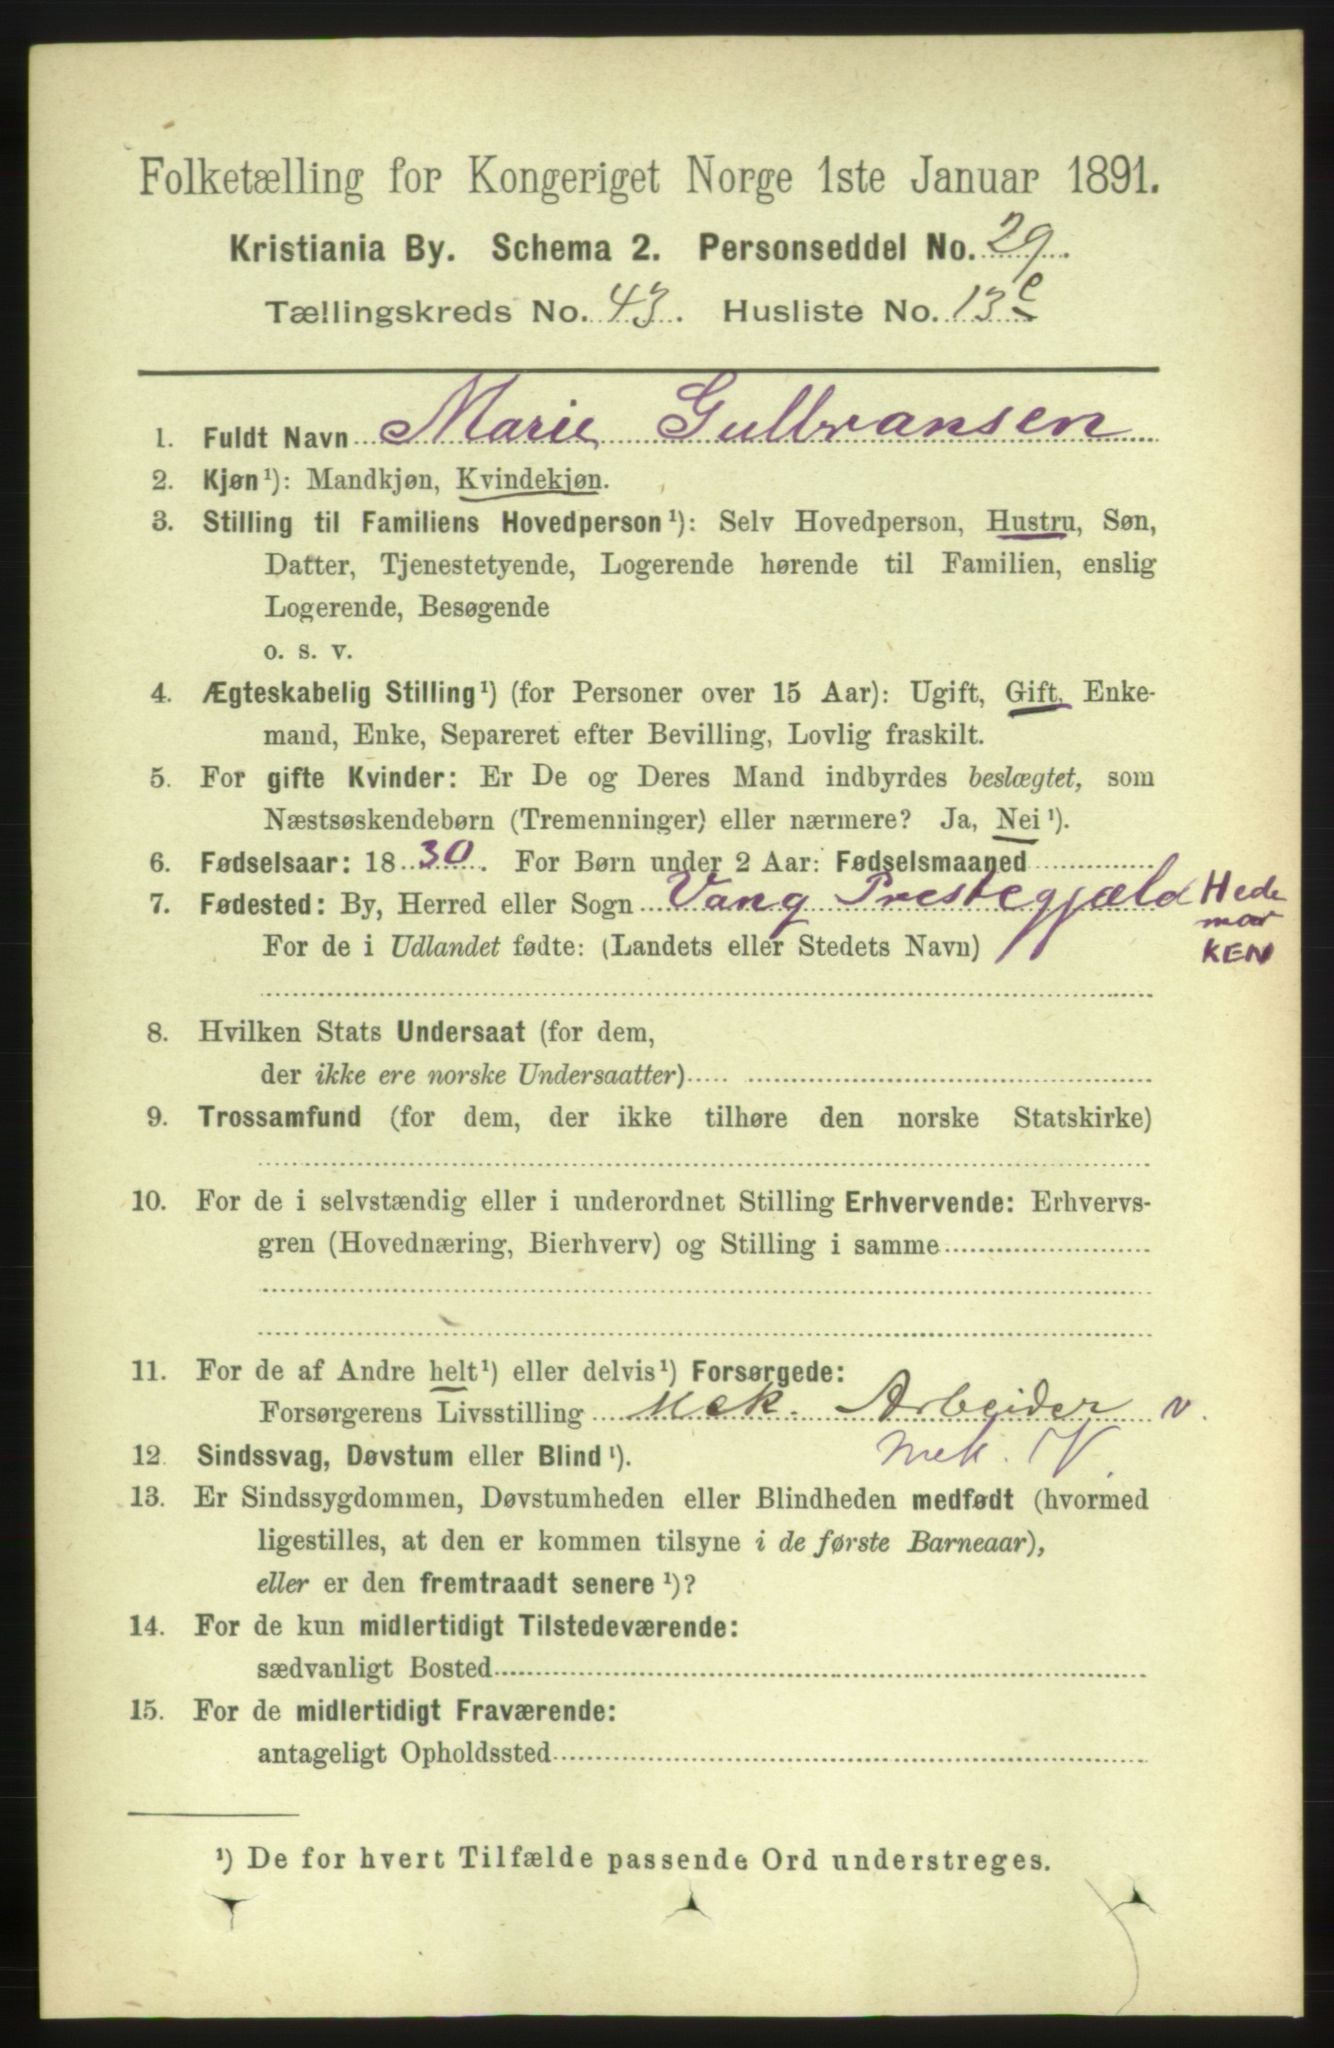 Folketælling for Kongeriget Norge 1ste Januar 1891.
Kristiania By. Schema 2. Personseddel No. 29.
Tællingskreds No. 43. Husliste No. 13c
1. Fuldt Navn Marie Gulbransen
2. Kjøn¹): Mandkjøn, Kvindekjøn.
3. Stilling til Familiens Hovedperson¹): Selv Hovedperson, Hustru, Søn,
Datter, Tjenestetyende, Logerende hørende til Familien, enslig
Logerende, Besøgende
o. s. v.
4. Ægteskabelig Stilling¹) (for Personer over 15 Aar): Ugift, Gift, Enke-
mand, Enke, Separeret efter Bevilling, Lovlig fraskilt.
5. For gifte Kvinder: Er De og Deres Mand indbyrdes beslægtet, som
Næstsøskendebørn (Tremenninger) eller nærmere? Ja, Nei¹).
6. Fødselsaar: 1830. For Børn under 2 Aar: Fødselsmaaned
7. Fødested: By, Herred eller Sogn Vang Prestegjæld Hede
mar
KEN
For de i Udlandet fødte: (Landets eller Stedets Navn)
8. Hvilken Stats Undersaat (for dem,
der ikke ere norske Undersaatter)
9. Trossamfund (for dem, der ikke tilhøre den norske Statskirke)
10. For de i selvstændig eller i underordnet Stilling Erhvervende: Erhvervs-
gren (Hovednæring, Bierhverv) og Stilling i samme
11. For de af Andre helt¹) eller delvis¹) Forsørgede:
Forsørgerens Livsstilling Mek. Arbeider v.
mek. V.
12. Sindssvag, Døvstum eller Blind¹).
13. Er Sindssygdommen, Døvstumheden eller Blindheden medfødt (hvormed
ligestilles, at den er kommen tilsyne i de første Barneaar),
eller er den fremtraadt senere¹)?
14. For de kun midlertidigt Tilstedeværende:
sædvanligt Bosted
15. For de midlertidigt Fraværende:
antageligt Opholdssted
¹) De for hvert Tilfælde passende Ord understreges.